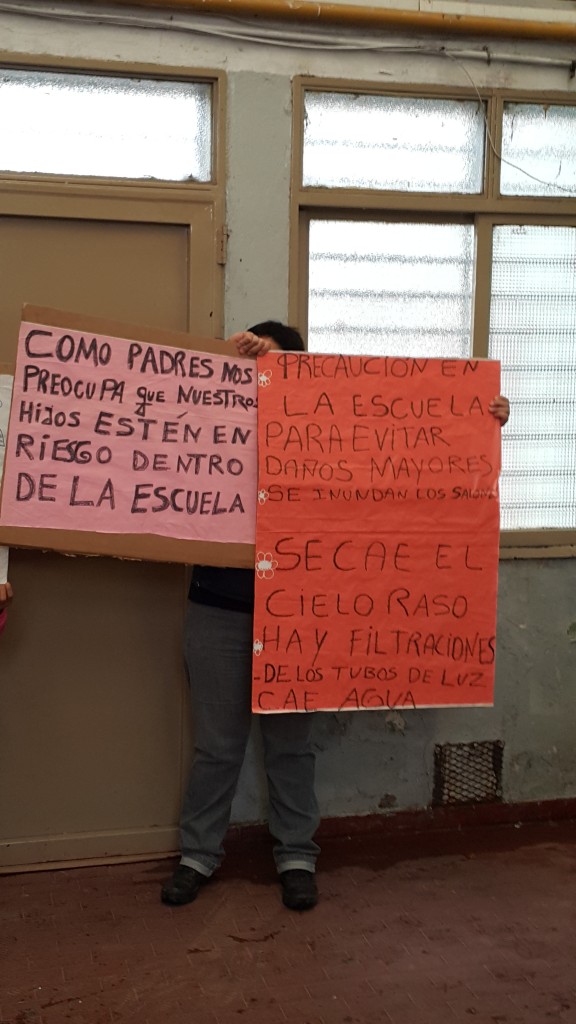 COMO PADRES NOS
PREOCUPA que NUESTROS
HIJOS ESTÉN EN
RIESGO DENTRO
DE LA ESCUELA
PRECAUCIÓN EN
LA ESCUELA
PARA EVITAR
DAÑOS MAYORES
SE INUNDAN LOS SALONES
SE CAE EL
CIELO RASO
HAY FILTRACIONES
-DE LOS TUBOS DE LUZ
CAE AGUA